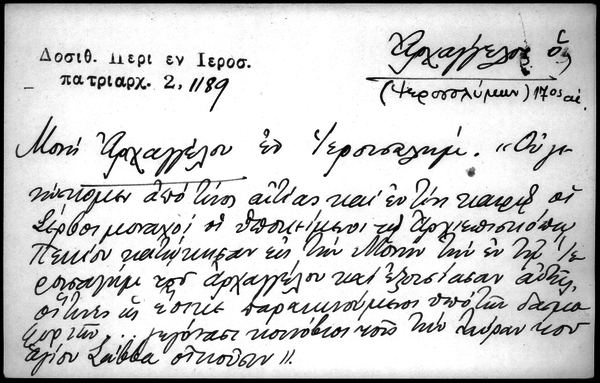 Δοσιθ. Περι εν Ιεροσ.
πατριαρχ. 2, 1189
Ἀρχαγγέλου ὁ
(Ἱεροσολύμων) 17ος αἰ.
Μονὴ Ἀρχαγγέλου ἐν Ἱερουσαλήμ. "Οὐ γι-
νώσκομεν ἀπὸ τίνος αἰτίας καὶ ἐν τίνι καιρῷ οἱ
Σέρβοι μοναχοὶ οἱ ὑποκείμενοι τῷ Ἀρχιεπισκόπῳ
Πεκίου κατῴκησαν εἰς τὴν Μονὴν τὴν ἐν τῇ Ἱε-
ρουσαλὴμ τοῦ ἀρχαγγέλου καὶ ἐξουσίασαν αὐτῆς,
οἵτινες ὡς ἔοικε παρακινούμενοι ὑπὸ τῶν
... γεγόνασι καὶ τὴν Λαύραν τοῦ
ἁγίου Σάββα οἰκοῦσιν".